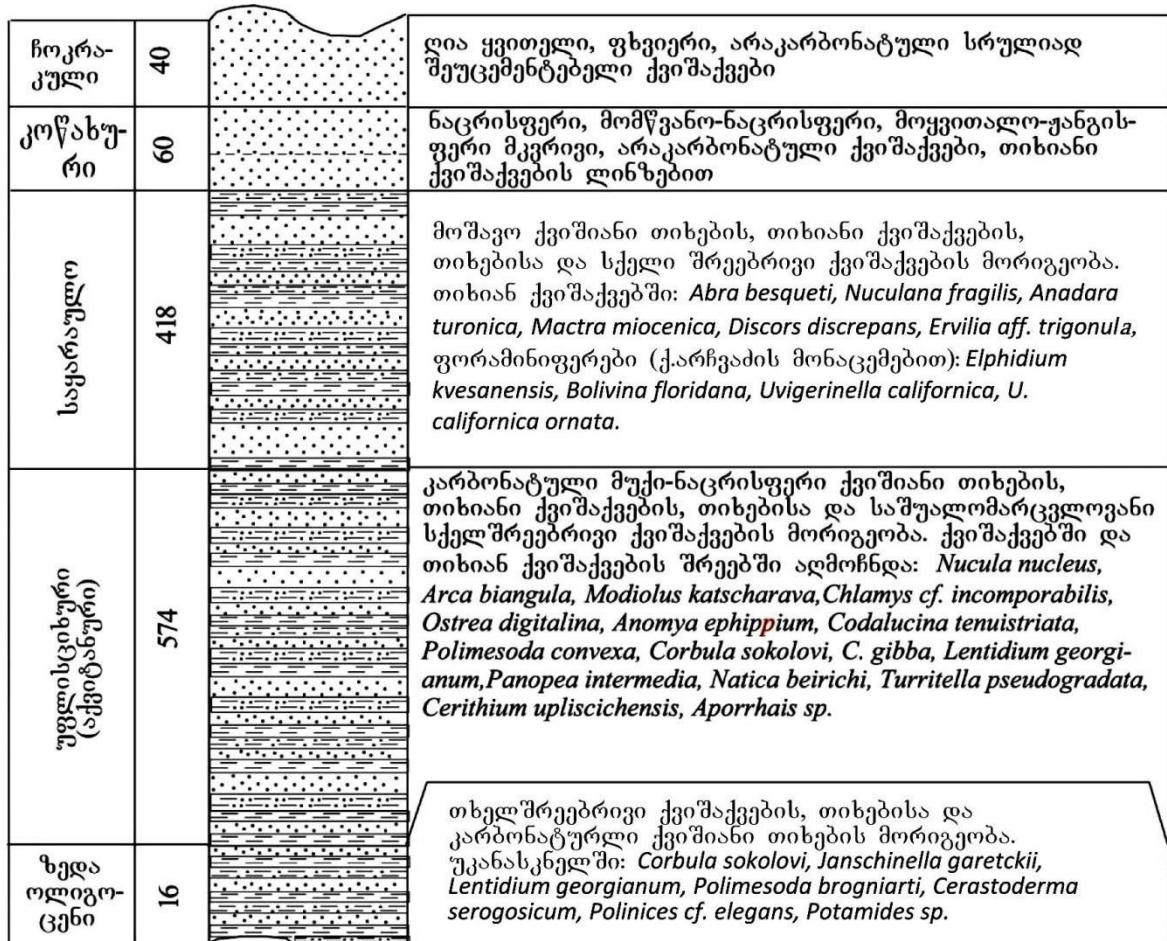 ჩოკრა-
კული
40
ღია ყვითელი, ფხვიერი, არაკარბონატული სრულიად
შეუცემენტებელი ქვიშაქვები
კოწახუ-
რი
60
ნაცრისფერი, მომწვანო-ნაცრისფერი, მოყვითალო-ჟანგის-
ფერი მკვრივი, არაკარბონატული ქვიშაქვები, თიხიანი
ქვიშაქვების ლინზებით
საყარაულო
418
მოშავო ქვიშიანი თიხების, თიხიანი ქვიშაქვების,
თიხებისა და სქელი შრეებრივი ქვიშაქვების მორიგეობა.
თიხიან ქვიშაქვებში: Abra besqueti, Nuculana fragilis, Anadara
turonica, Mactra miocenica, Discors discrepans, Ervilia aff. trigonula,
ფორამინიფერები (ქ.არჩვაძის მონაცემებით): Elphidium
kvesanensis, Bolivina floridana, Uvigerinella californica, U.
californica ornata.
უფლისციხური
(აქვიტანური)
574
კარბონატული მუქი-ნაცრისფერი ქვიშიანი თიხების,
თიხიანი ქვიშაქვების, თიხებისა და საშუალომარცვლოვანი
სქელშრეებრივი ქვიშაქვების მორიგეობა. ქვიშაქვებში და
თიხიან ქვიშაქვების შრეებში აღმოჩნდა: Nucula nucleus,
Arca biangula, Modiolus katscharava,Chlamys cf. incomporabilis,
Ostrea digitalina, Anomya ephippium, Codalucina tenuistriata,
Polimesoda convexa, Corbula sokolovi, C. gibba, Lentidium georgi-
anum,Panopea intermedia, Natica beirichi, Turritella pseudogradata,
Cerithium upliscichensis, Aporrhais sp.
ზედა
ოლიგო-
ცენი
16
თხელშრეებრივი ქვიშაქვების, თიხებისა და
კარბონატურლი ქვიშიანი თიხების მორიგეობა.
უკანასკნელში: Corbula sokolovi, Janschinella garetckii,
Lentidium georgianum, Polimesoda brogniarti, Cerastoderma
serogosicum, Polinices cf. elegans, Potamides sp.